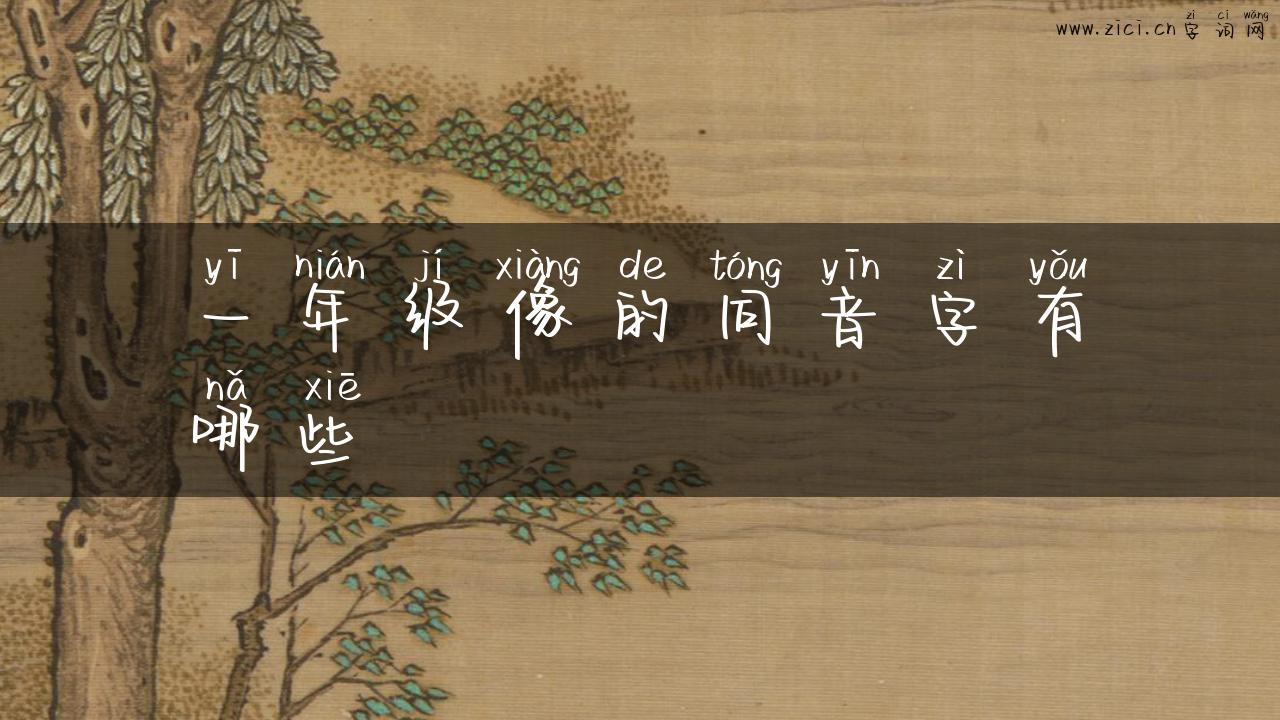 zì cí wǎng
www.zici.cn 字词网
yī nián jí xiàng de tóng yīn zì yǒu
一年级像的同音字有
nǎ xiē
哪些